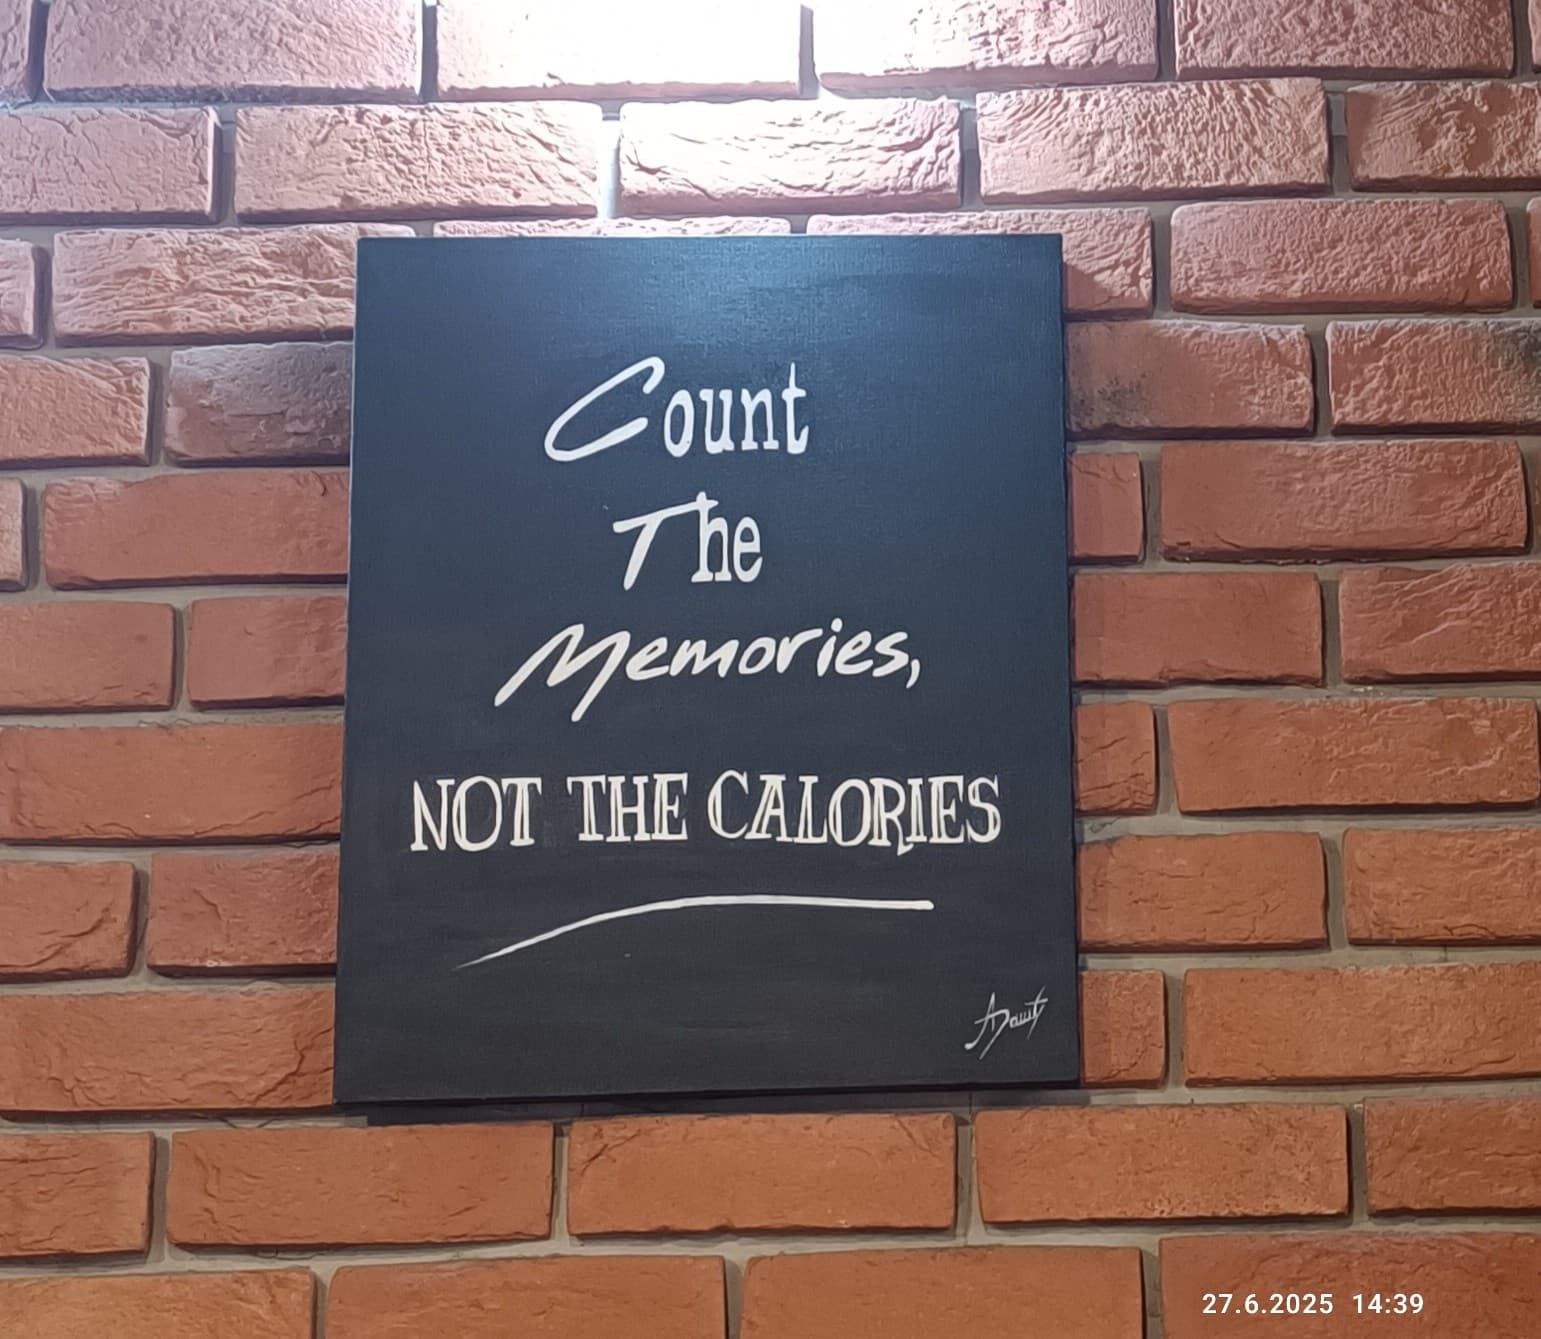 Count
The
Memories,
NOT THE CALORIES
27.6.2025 14:39